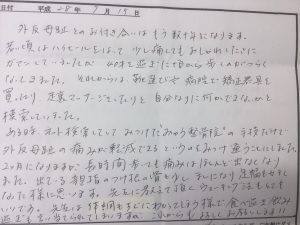 日付 平成 28年 7月 15日
外反母趾とのお付き合いはもう数十年になります。
若い頃はハイヒールをはいて少し痛くてもおしゃれしたいと
ガマンしていましたが 40才を過ぎた頃から歩くのがつらく
なってきました。それからは、靴選びや病院で矯正器具を
買ったり、足裏マッサージをしたりと自分なりに何かできないかと
検索していました。
ある時、ネット検索をしていてみつけた"みゅう整骨院"の手技だけで
外反母趾の痛みが軽減できるというのもあり通うことにしました。
2ヶ月になりますが、長時間歩いても痛みはほとんど出なくなり
ました。出ている親指のつけ根の骨も少し小さくなり足幅もせまく
なった様に思います。先生に考えて頂くとウォーキングはとても
いいです。先生は体調もすぐにわかってしまう様で食べ過ぎ飲み
過ぎも言い当てられてしまいますが、これからもよろしくお願いします!!